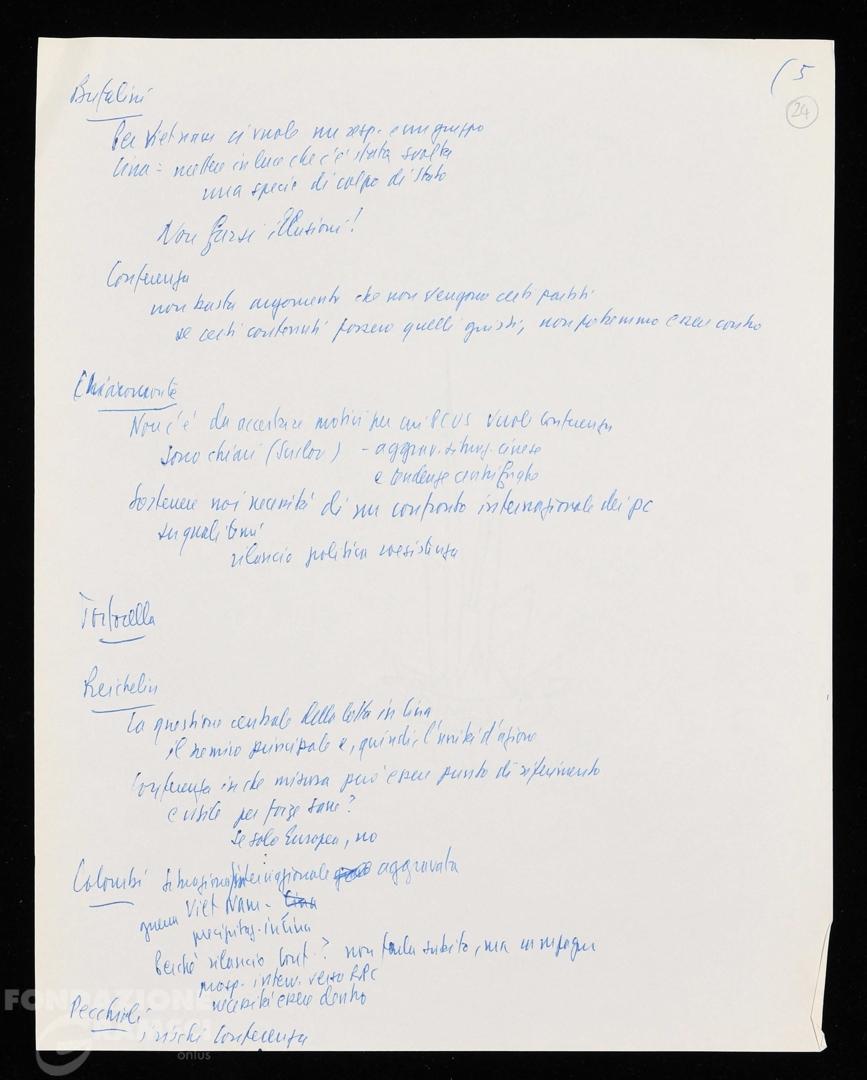 (5
24
Bufalini
Per Viet Nam ci vuole un resp. e un gruppo
Cina = mettere in luce che c'è stata svolta
una specie di colpo di stato
Non farsi illusioni!
Conferenza
non basta argomento che non vengono certi partiti
se certi contenuti fossero quelli giusti, non potremmo essere contro
Chiaromonte
Non c'è da accertare motivi per cui PCUS vuole Conferenza
Sono chiari (Suslov) - aggrav. situaz. cinese
e tendenze centrifughe
Sostenere noi necessità di un confronto internazionale dei pc
su quali temi
rilancio politica coesistenza
Tortorella
Reichlin
La questione centrale della lotta in Cina
il nemico principale e, quindi, l'unità d'azione
Conferenza in che misura può essere punto di riferimento
e visile per forze sane?
Se solo Europea, no
Colombi situazione internazionale aggravata
guerra Viet Nam - Cina
precipitaz. in Cina
Perché rilancio Conf.? non farla subito, ma
interv. verso RPC
necessità essere dentro
Pecchioli
i rischi Conferenza
FONDAZIONE
GRAMSCI
onlus